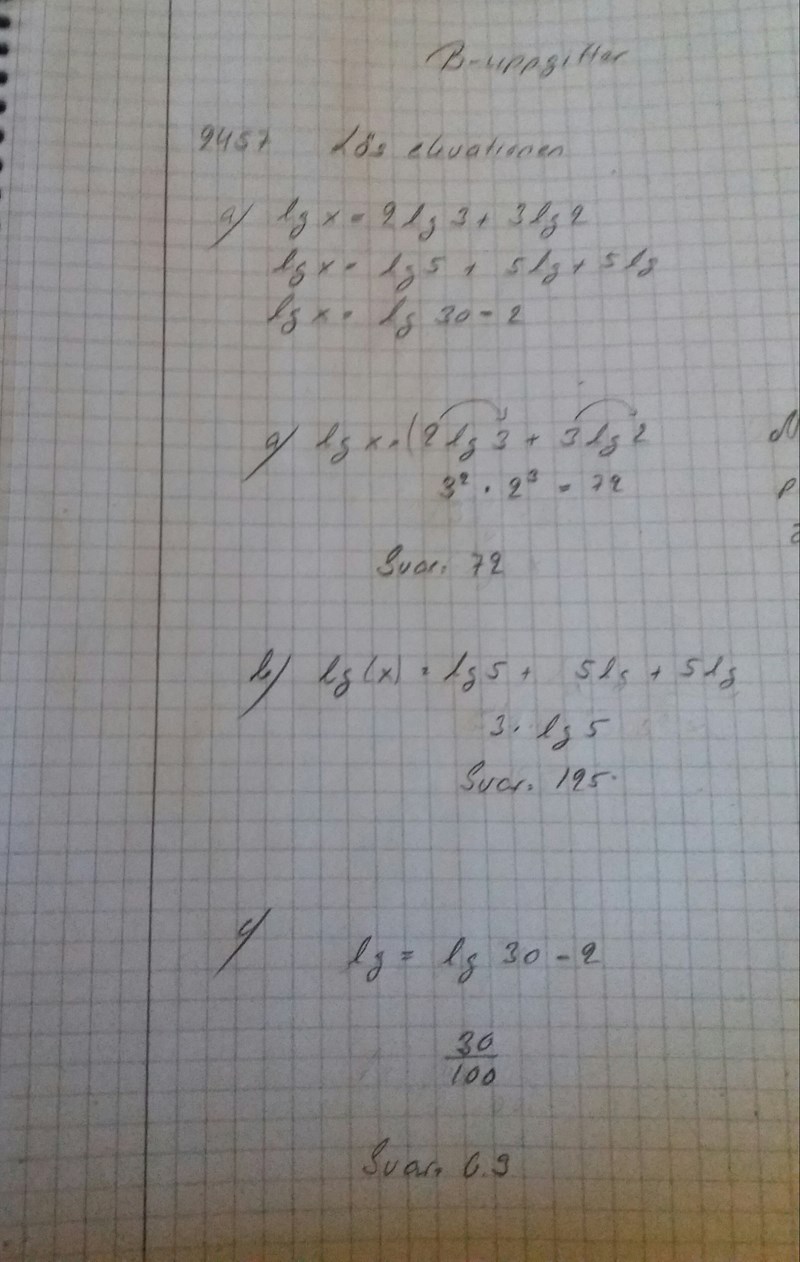 B-uppgifter
2457 Lös ekvationen
a) lg x = 2 lg 3 + 3 lg 2
lg x = lg 5 + 5 lg + 5 lg
lg x = lg 30 - 2
a) lg x = (2 lg 3 + 3 lg 2
3² · 2³ = 72
Svar: 72
b) lg (x) = lg 5 + 5 lg + 5 lg
3 · lg 5
Svar: 125
c)
lg = lg 30 - 2
30
100
Svar: 0.3